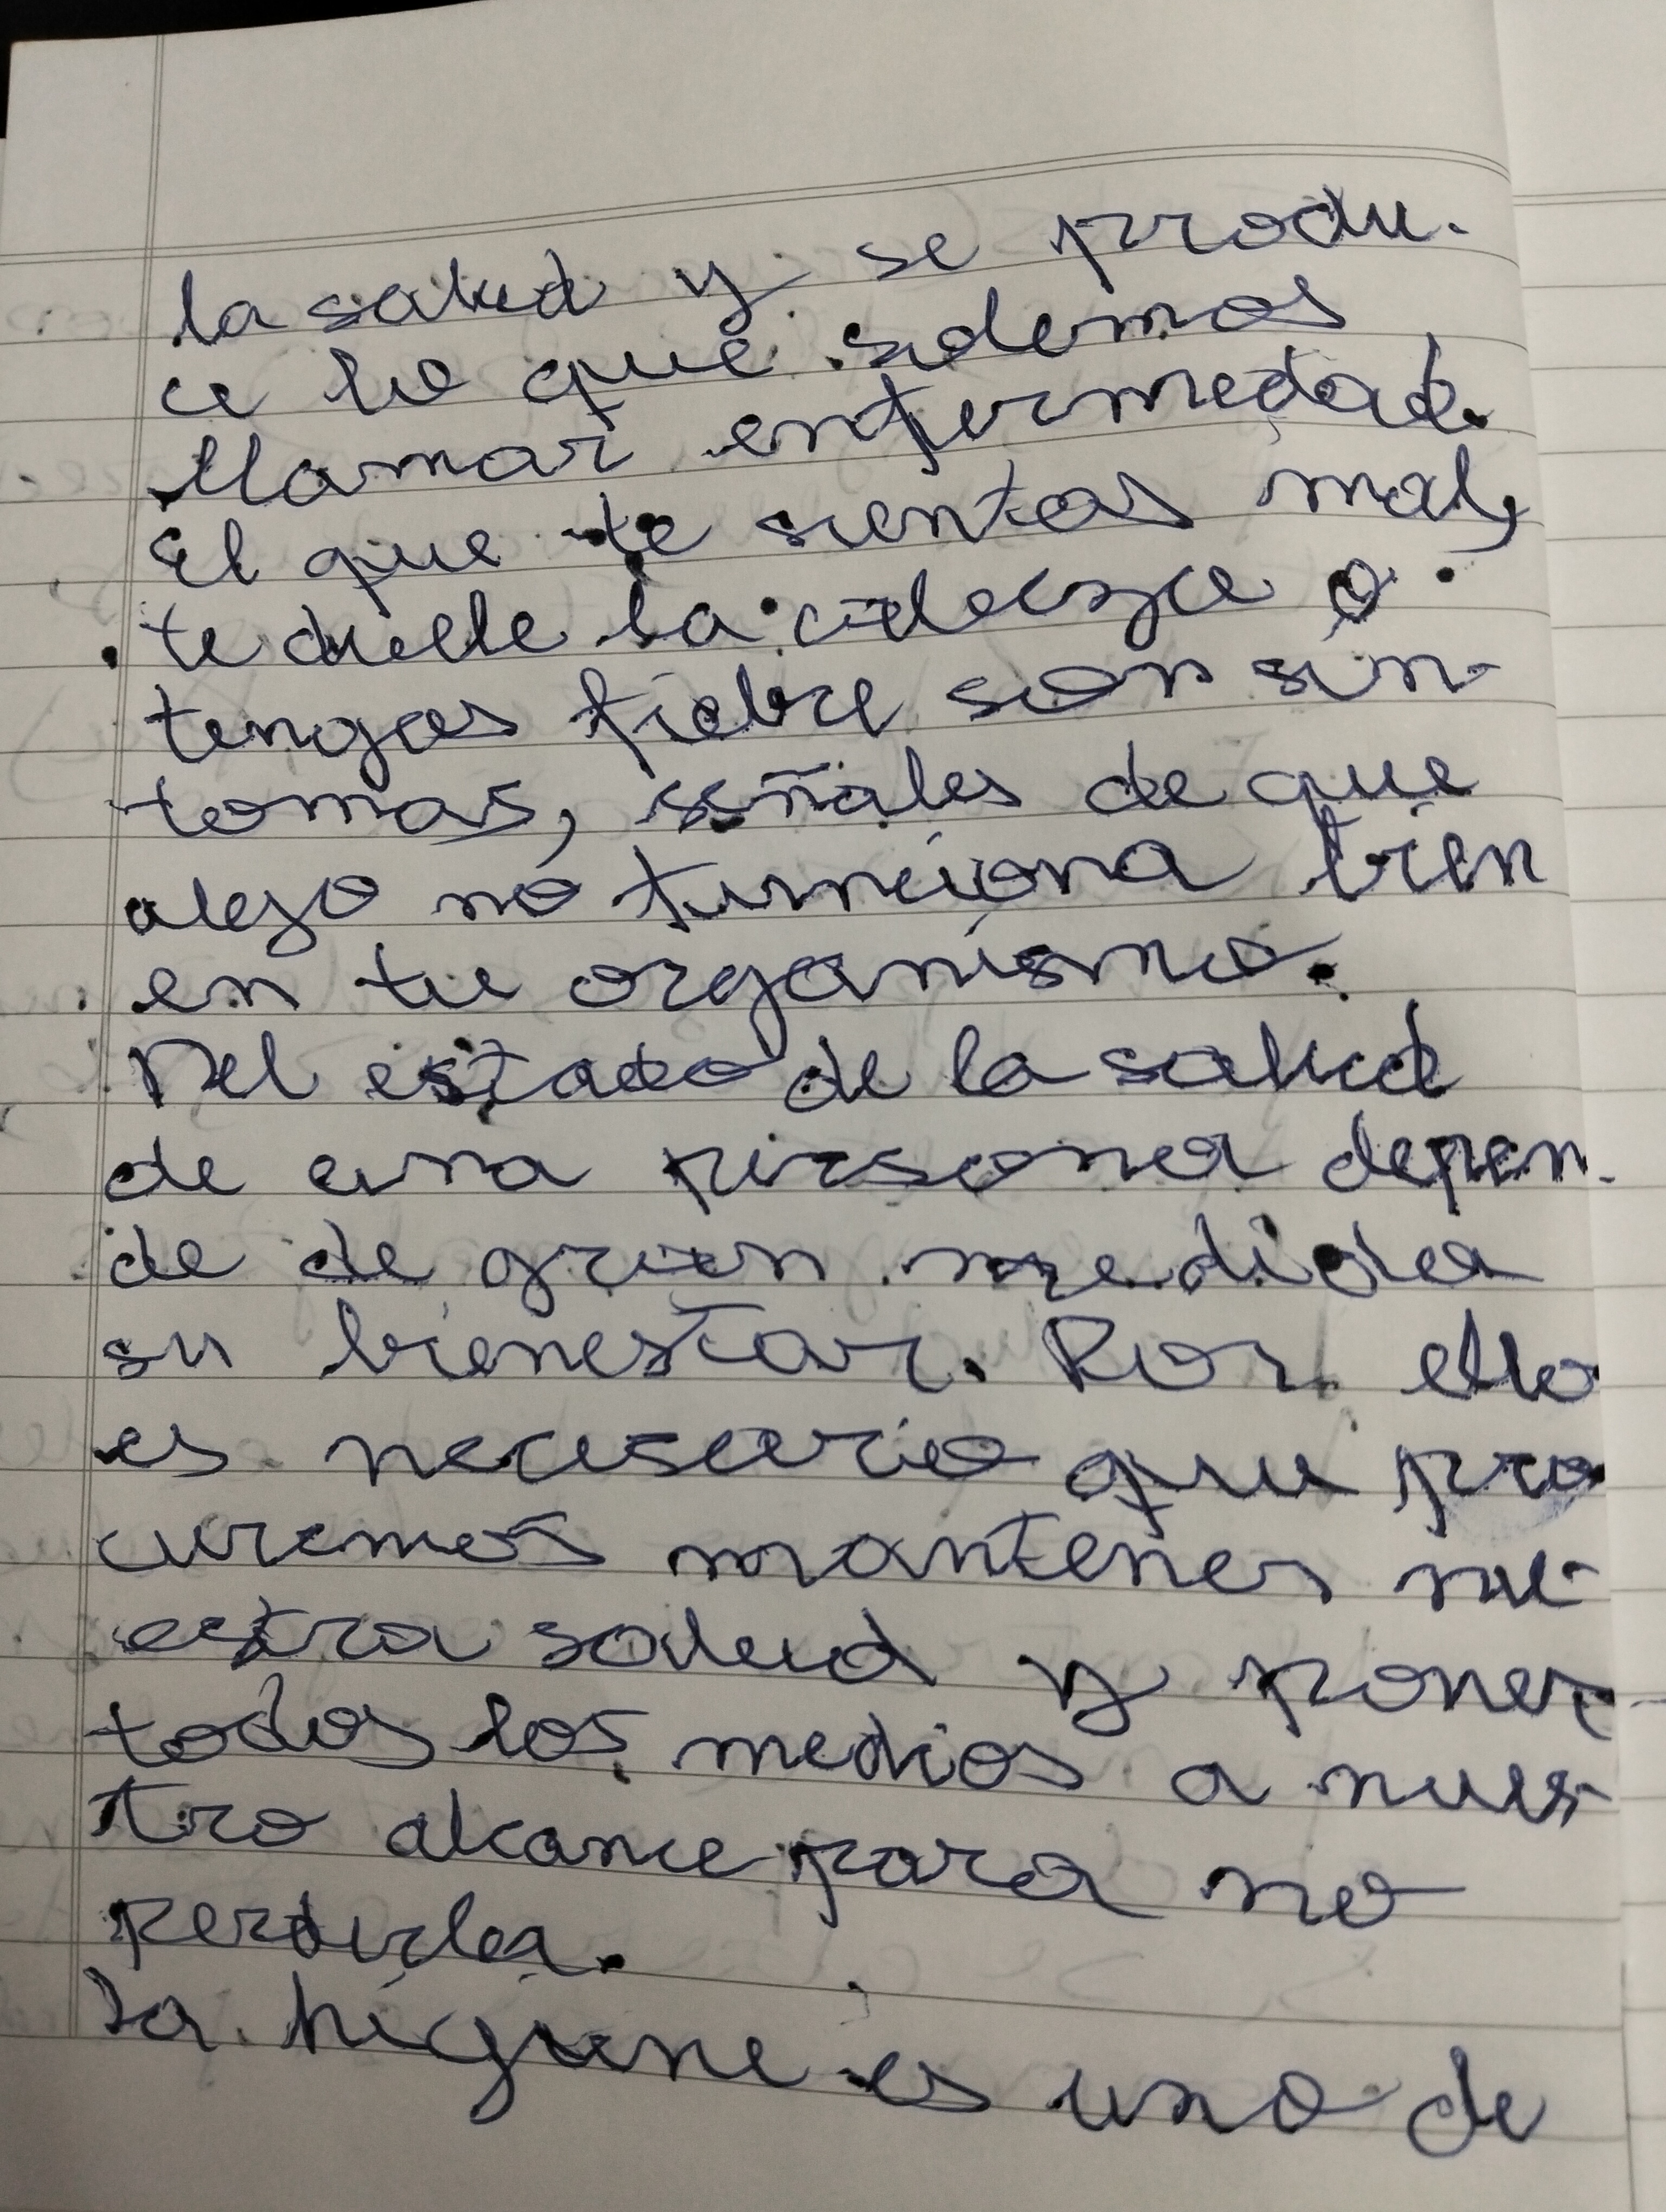 la salud y se produ-
ce lo que solemos
llamar enfermedad.
El que te sientas mal,
te duele la cabeza o
tengas fiebre son sín-
tomas, señales de que
algo no funciona bien
en tu organismo.
Del estado de la salud
de una persona depen-
de de gran medida
su bienestar. Por ello
es necesario que pro
curemos mantener nu-
estra salud y poner
todos los medios a nues-
tro alcance para no
perderla.
La higiene es uno de